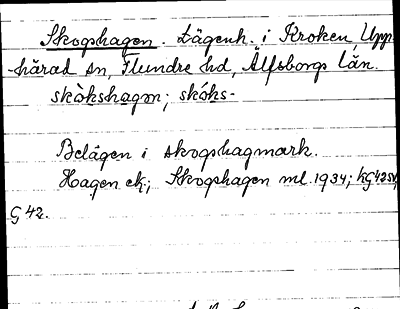 Skogshagen. Lägenh. i Kroken, Upp-
härad sn, Flundre hd, Älfsborgs län.
skòkshagɒn; skóks-
Belägen i skogshagmark.
Hagen ek; Skogshagen ml. 1934; kG42SV,
G 42.